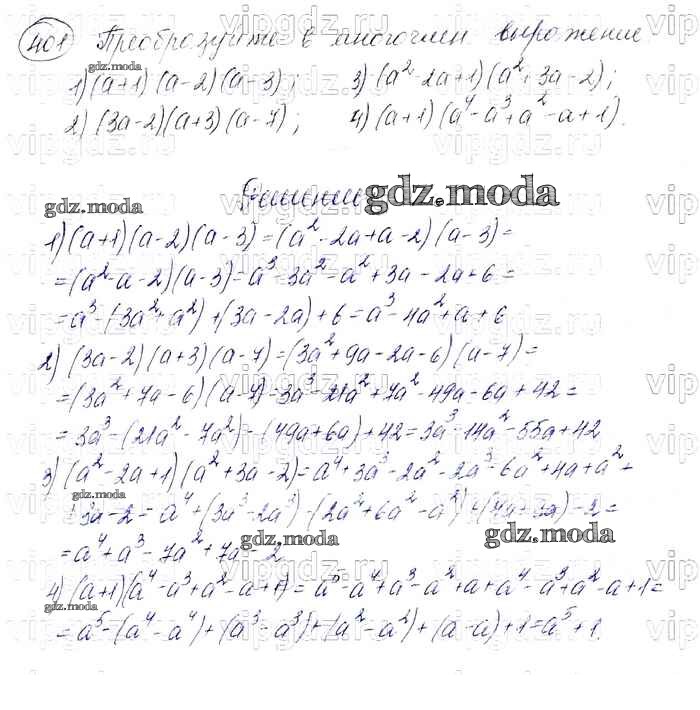 401 Преобразуйте в многочлен выражение
1) (a+1)(a-2)(a-3); 3) (a²-2a+1)(a²+3a-2);
2) (3a-2)(a+3)(a-7); 4) (a+1)(a⁴-a³+a²-a+1).
Решение
1) (a+1)(a-2)(a-3)=(a²-2a+a-2)(a-3)=
=(a²-a-2)(a-3)=a³-3a²-a²+3a-2a+6=
=a³-(3a²+a²)+(3a-2a)+6=a³-4a²+a+6
2) (3a-2)(a+3)(a-7)=(3a²+9a-2a-6)(a-7)=
=(3a²+7a-6)(a-7)=3a³-21a²+7a²-49a-6a+42=
=3a³-(21a²-7a²)-(49a+6a)+42=3a³-14a²-55a+42
3) (a²-2a+1)(a²+3a-2)=a⁴+3a³-2a²-2a³-6a²+4a+a²+
+3a-2=a⁴+(3a³-2a³)-(2a²+6a²-a²)+(4a+3a)-2=
=a⁴+a³-7a²+7a-2
4) (a+1)(a⁴-a³+a²-a+1)=a⁵-a⁴+a³-a²+a+a⁴-a³+a²-a+1=
=a⁵-(a⁴-a⁴)+(a³-a³)+(a²-a²)+(a-a)+1=a⁵+1.
gdz.moda
vipgdz.ru